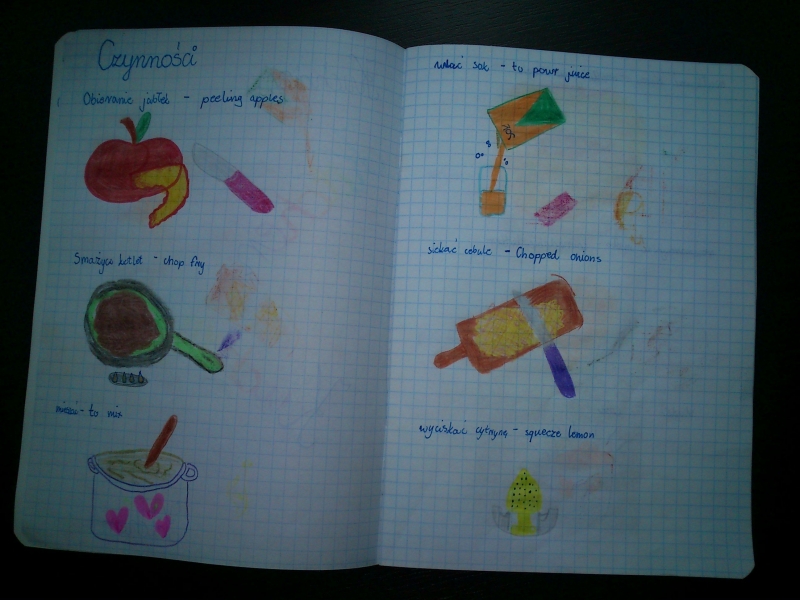 Czynności
Obieranie jabłek - peeling apples
Smażyć kotlet - chop fry
mieszać - to mix
wlać sok - to powr juice
SOK
siekać cebule - Chopped onions
wyciskać cytrynę - squeeze lemon